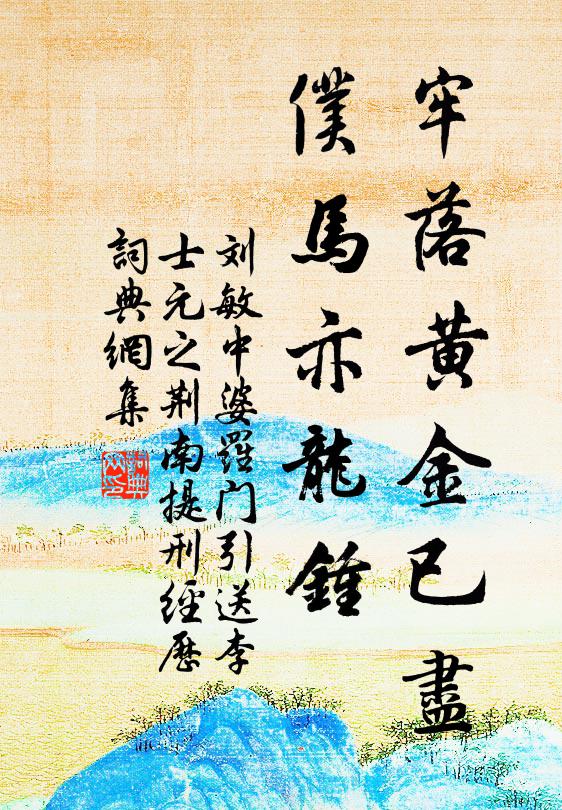 牢落黄金已盡
僕馬亦龍鍾
刘敏中婆羅门引送李
士元之荆南提刑經歷
詞典網集
詞典